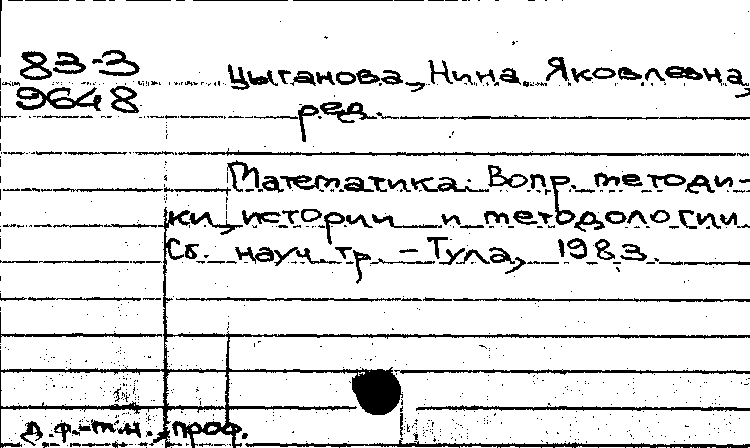 83-3
9648
Цыганова, Нина Яковлевна,
ред.
Математика: Вопр. методи-
ки, истории и методологии
Сб. науч. тр. - Тула, 1983.
д. ф.-м.н., проф.